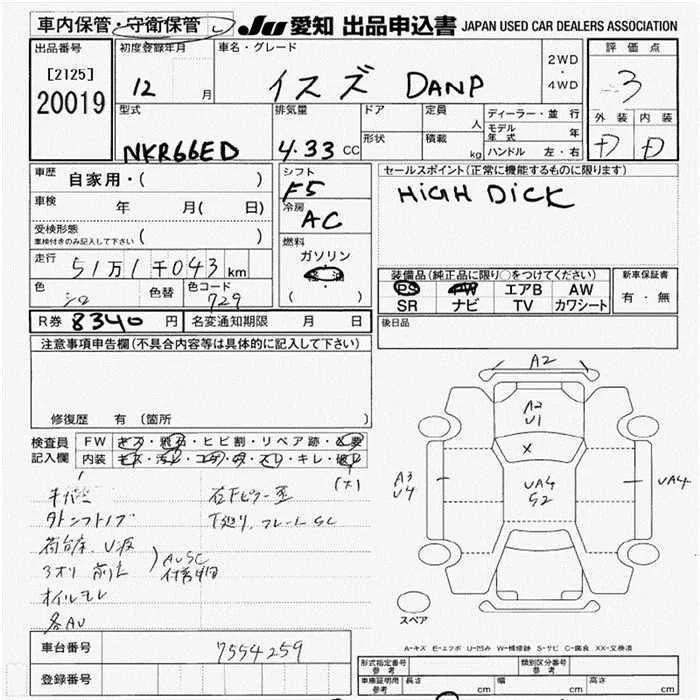 車内保管・守衛保管 JU 愛知 出品申込書 JAPAN USED CAR DEALERS ASSOCIATION
出品番号 初度登録年月 車名・グレード 2WD・4WD 評価点
[2125] 12 月 イスズ DANP 3
20019
型式 排気量 ドア 定員 人 ディーラー・並行 外装 内装
形状 積載 kg モデル年式 年 D D
NKR66ED 4.33 CC ハンドル 左・右
車歴 自家用・( ) シフト F5 セールスポイント(正常に機能するものに限ります)
車検 年 月( 日) 冷房 AC HiGH DiCK
受検形態 ( )
車検付きのみ記入して下さい
燃料 ガソリン
走行 51万1千043 km ( )
装備品(純正品に限り○をつけてください) 新車保証書
色 シロ 色替 色コード 729
PS PW エアB AW 有・無
SR ナビ TV カワシート
R券 8340 円 名変通知期限 月 日 後日品
注意事項申告欄(不具合内容等は具体的に記入して下さい)
修復歴 有 (箇所 )
検査員 FW キズ・飛石・ヒビ割・リペア跡・必要
記入欄 内装 キズ・汚レ・コゲ・穴・スレ・キレ・破レ
(大)
外ドンフトノブ
下廻り、フレームSC
AUSC
オイルモレ
各AU
A2
A2
U1
X
UA4
S2
A3
U4
UA4
スペア
A-キズ E-エクボ U-凹み W-補修跡 S-サビ C-腐食 XX-交換済
車台番号 7554259
登録番号
形式指定番号 参考 類別区分番号 参考
車検証明用 参考 長さ cm 幅 cm 高さ cm